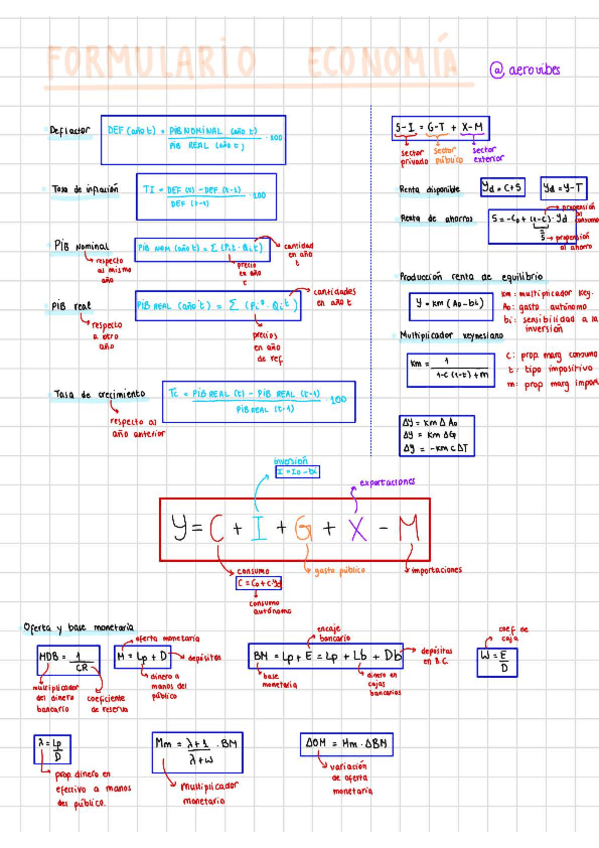 FORMULARIO ECONOMÍA
@aerovibes
Deflactor
DEF (año t) = PIB NOMINAL (año t) / PIB REAL (año t) · 100
Tasa de inflación
TI = DEF (t) - DEF (t-1) / DEF (t-1) · 100
PIB Nominal
respecto
al mismo
año
PIB NOM (año t) = Σ (Pit · Qit)
cantidad
en año
t
precio
en año
t
PIB real
respecto
a otro
año
PIB REAL (año t) = Σ (Pi° · Qit)
cantidades
en año t
precios
en año
de ref.
Tasa de crecimiento
respecto al
año anterior
Tc = PIB REAL (t) - PIB REAL (t-1) / PIB REAL (t-1) · 100
S-I = G-T + X-M
sector
privado
sector
público
sector
exterior
Renta disponible
Yd = C+S
Yd = Y-T
Renta de ahorros
S = -Co + (1-c) · Yd
propensión
al
consumo
s → propensión
al ahorro
Producción renta de equilibrio
Y = Km (Ao - bi)
Km: multiplicador Key.
Ao: gasto autónomo
bi: sensibilidad a la
inversión
Multiplicador keynesiano
Km = 1 / 1-c (1-t) + m
C: prop. marg consumo
t: tipo impositivo
m: prop marg import
ΔY = Km Δ Ao
ΔY = Km ΔG
ΔY = -Km c ΔT
inversión
I = Io - bi
exportaciones
Y = C + I + G + X - M
consumo
C = Co + c Yd
consumo
autónomo
gasto público
importaciones
Oferta y base monetaria
MDB = 1 / CR
multiplicador
del dinero
bancario
coeficiente
de reserva
oferta monetaria
M = Lp + D
depósitos
dinero a
manos del
público
encaje
bancario
BM = Lp + E = Lp + Lb + Db
depósitos
en B.C.
base
monetaria
dinero en
cajas
bancarias
coef. de
caja
W = E / D
λ = Lp / D
prop. dinero en
efectivo a manos
del público.
Mm = λ+1 / λ+w · BM
Multiplicador
monetario
ΔOM = Mm · ΔBM
variación
de oferta
monetaria